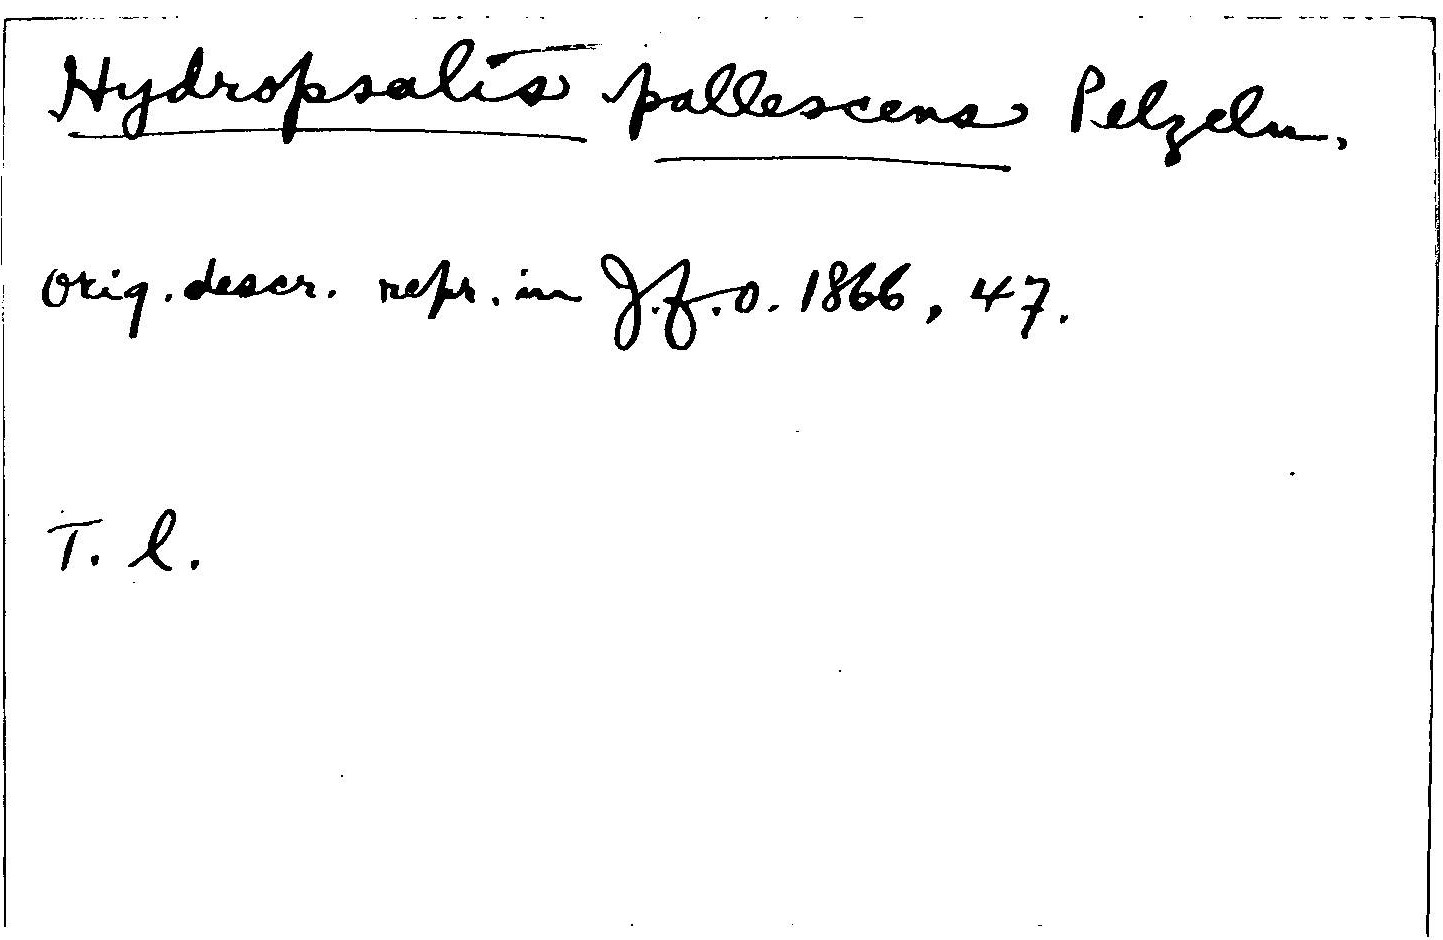 Hydropsalis pallescens Pelzeln.
Orig. descr. repr. in J.f.O. 1866, 47.
T. l.